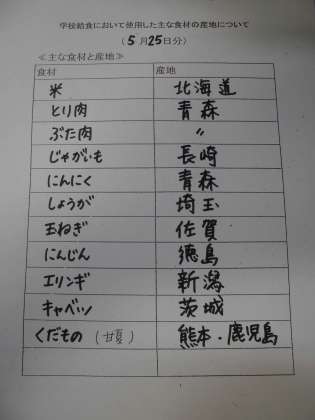 学校給食において使用した主な食材の産地について
(5月25日分)
≪主な食材と産地≫
食材 産地
米 北海道
とり肉 青森
ぶた肉 〃
じゃがいも 長崎
にんにく 青森
しょうが 埼玉
玉ねぎ 佐賀
にんじん 徳島
エリンギ 新潟
キャベツ 茨城
くだもの(甘夏) 熊本・鹿児島